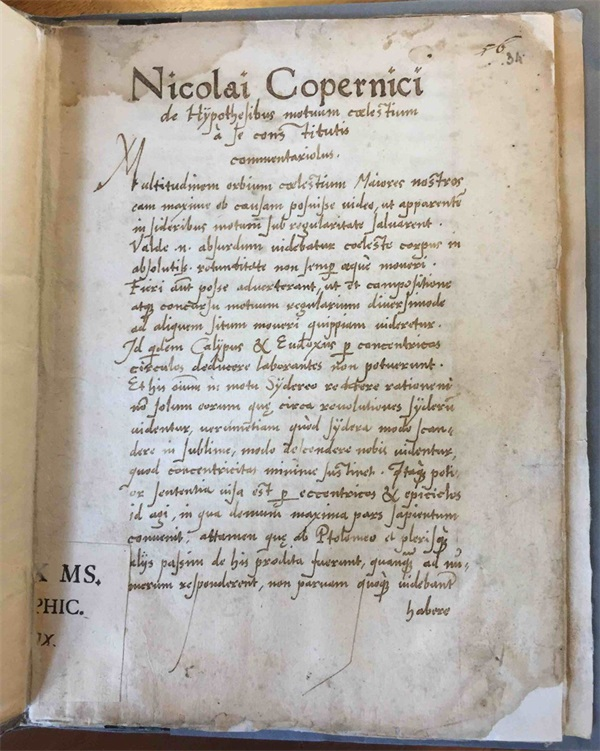 56
34
Nicolai Copernici
de Hÿpothesibus motuum cœlestium
à se constitutis
commentariolus.
Multitudinem orbium cœlestium Maiores nostros
eam maxime ob causam posuisse video, ut apparentē
in sideribus motum sub regularitate salvarent.
Valde .n. absurdum videbatur cœleste corpus in
absolutiss. rotunditate non semp æque moveri.
Fieri aūt posse adverterant, ut et compositione
atq concursu motuum regularium diversimode
ad aliquem situm moveri quippiam videretur.
Id qdem Calypus & Eudoxus p concentricos
circulos deducere laborantes non potuerunt.
Et his oīum in motu Sÿdereo reddere rationem
nō solum eorum quę circa revolutiones sÿderū
videntur, verumetiam quòd sÿdera modo scan-
dere in sublime, modo descendere nobis videntur,
quod concentricitas minime sustinet. Itaq poti-
or sententia visa est p eccentricos & epiciclos
id agi, in qua demum maxima pars sapientum
convenit. attamen quę ab Ptolomeo et plerisq
alÿs passim de his prodita fuerunt, quanq ad nu-
merum responderent, non parvam quoq videbant
habere
X MS.
PHIC.
IX.